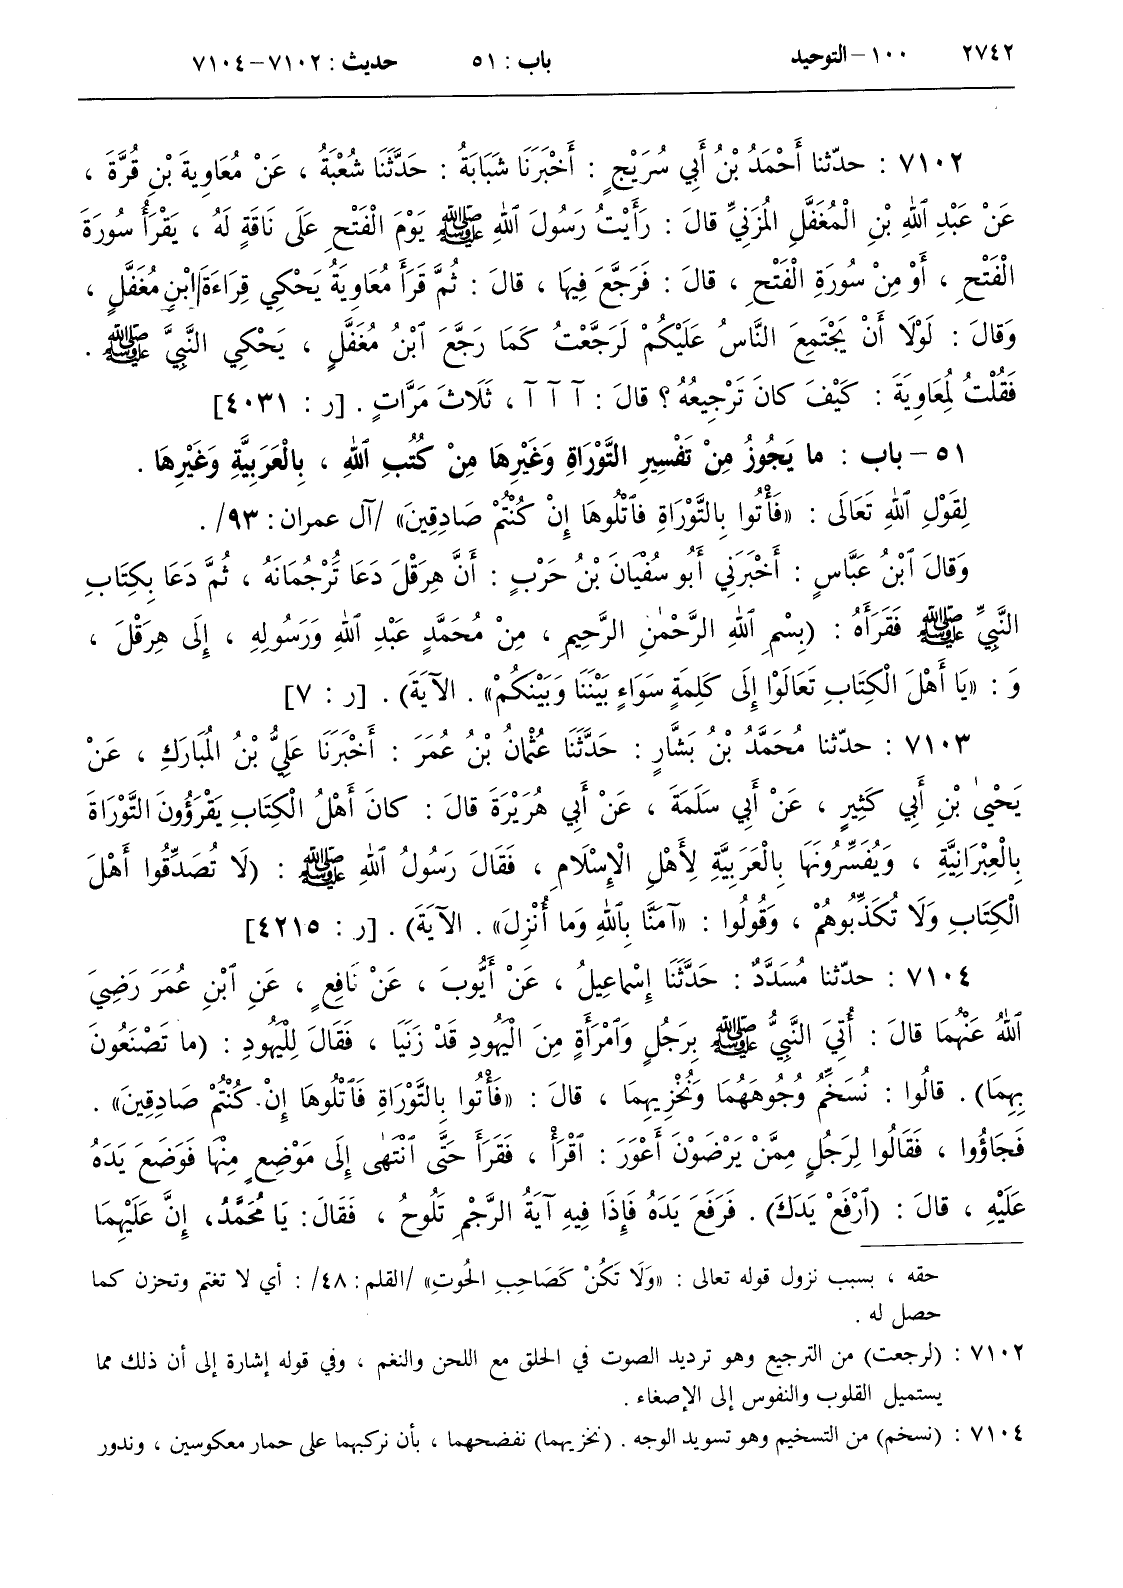 ٢٧٤٢ ١٠٠ – التوحيد باب : ٥١ حديث : ٧١٠٢–٧١٠٤
٧١٠٢ : حدّثنا أَحْمَدُ بْنُ أَبِي سُرَيْجٍ : أَخْبَرَنَا شَبَابَةُ : حَدَّثَنَا شُعْبَةُ ، عَنْ مُعَاوِيَةَ بْنِ قُرَّةَ ،
عَنْ عَبْدِ ٱللهِ بْنِ الْمُغَفَّلِ المُزَنِيِّ قالَ : رَأَيْتُ رَسُولَ ٱللهِ ﷺ يَوْمَ الْفَتْحِ عَلَى نَاقَةٍ لَهُ ، يَقْرَأُ سُورَةَ
الْفَتْحِ ، أَوْ مِنْ سُورَةِ الْفَتْحِ ، قالَ : فَرَجَّعَ فِيهَا ، قالَ : ثُمَّ قَرَأَ مُعَاوِيَةُ يَحْكِي قِرَاءَةَ ابْنِ مُغَفَّلٍ ،
وَقالَ : لَوْلَا أَنْ يَجْتَمِعَ النَّاسُ عَلَيْكُمْ لَرَجَّعْتُ كَمَا رَجَّعَ ٱبْنُ مُغَفَّلٍ ، يَحْكِي النَّبِيَّ ﷺ .
فَقُلْتُ لِمُعَاوِيَةَ : كَيْفَ كانَ تَرْجِيعُهُ؟ قالَ : آ آ آ ، ثَلَاثَ مَرَّاتٍ . [ر : ٤٠٣١]
٥١ – باب : ما يَجُوزُ مِنْ تَفْسِيرِ التَّوْرَاةِ وَغَيْرِهَا مِنْ كُتُبِ ٱللهِ ، بِالْعَرَبِيَّةِ وَغَيْرِهَا .
لِقَوْلِ ٱللهِ تَعَالَى : «فَأْتُوا بِالتَّوْرَاةِ فَٱتْلُوهَا إِنْ كُنْتُمْ صَادِقِينَ» /آل عمران: ٩٣/ .
وَقالَ ٱبْنُ عَبَّاسٍ : أَخْبَرَنِي أَبُو سُفْيَانَ بْنُ حَرْبٍ : أَنَّ هِرَقْلَ دَعَا تُرْجُمَانَهُ ، ثُمَّ دَعَا بِكِتَابِ
النَّبِيِّ ﷺ فَقَرَأَهُ : (بِسْمِ ٱللهِ الرَّحْمٰنِ الرَّحِيمِ ، مِنْ مُحَمَّدٍ عَبْدِ ٱللهِ وَرَسُولِهِ ، إِلَى هِرَقْلَ ،
وَ : «يَا أَهْلَ الْكِتَابِ تَعَالَوْا إِلَى كَلِمَةٍ سَوَاءٍ بَيْنَنَا وَبَيْنَكُمْ» . الآيَةَ) . [ر : ٧]
٧١٠٣ : حدّثنا مُحَمَّدُ بْنُ بَشَّارٍ : حَدَّثَنَا عُثْمَانُ بْنُ عُمَرَ : أَخْبَرَنَا عَلِيُّ بْنُ الْمُبَارَكِ ، عَنْ
يَحْيىٰ بْنِ أَبِي كَثِيرٍ ، عَنْ أَبِي سَلَمَةَ ، عَنْ أَبِي هُرَيْرَةَ قالَ : كانَ أَهْلُ الْكِتَابِ يَقْرَؤُونَ التَّوْرَاةَ
بِالْعِبْرَانِيَّةِ ، وَيُفَسِّرُونَهَا بِالْعَرَبِيَّةِ لِأَهْلِ الْإِسْلَامِ ، فَقَالَ رَسُولُ ٱللهِ ﷺ : (لَا تُصَدِّقُوا أَهْلَ
الْكِتَابِ وَلَا تُكَذِّبُوهُمْ ، وَقُولُوا : «آمَنَّا بِٱللهِ وَما أُنْزِلَ» . الآيَةَ) . [ر : ٤٢١٥]
٧١٠٤ : حدّثنا مُسَدَّدٌ : حَدَّثَنَا إِسْمَاعِيلُ ، عَنْ أَيُّوبَ ، عَنْ نَافِعٍ ، عَنِ ٱبْنِ عُمَرَ رَضِيَ
ٱللهُ عَنْهُمَا قالَ : أُتِيَ النَّبِيُّ ﷺ بِرَجُلٍ وَٱمْرَأَةٍ مِنَ الْيَهُودِ قَدْ زَنَيَا ، فَقَالَ لِلْيَهُودِ : (ما تَصْنَعُونَ
بِهِمَا) . قالُوا : نُسَخِّمُ وُجُوهَهُمَا وَنُخْزِيهِمَا ، قالَ : «فَأْتُوا بِالتَّوْرَاةِ فَٱتْلُوهَا إِنْ كُنْتُمْ صَادِقِينَ» .
فَجَاؤُوا ، فَقَالُوا لِرَجُلٍ مِمَّنْ يَرْضَوْنَ أَعْوَرَ : ٱقْرَأْ ، فَقَرَأَ حَتَّى ٱنْتَهٰى إِلَى مَوْضِعٍ مِنْهَا فَوَضَعَ يَدَهُ
عَلَيْهِ ، قالَ : (ٱرْفَعْ يَدَكَ) . فَرَفَعَ يَدَهُ فَإِذَا فِيهِ آيَةُ الرَّجْمِ تَلُوحُ ، فَقَالَ: يَا مُحَمَّدُ، إِنَّ عَلَيْهِمَا
حقه ، بسبب نزول قوله تعالى : «وَلَا تَكُنْ كَصَاحِبِ الحُوتِ» /القلم: ٤٨/ : أي لا تغتم وتحزن كما
حصل له .
٧١٠٢ : (لرجعت) من الترجيع وهو ترديد الصوت في الحلق مع اللحن والنغم ، وفي قوله إشارة إلى أن ذلك مما
يستميل القلوب والنفوس إلى الإصغاء .
٧١٠٤ : (نسخم) من التسخيم وهو تسويد الوجه . (نخزيهما) نفضحهما ، بأن نركبهما على حمار معكوسين ، وندور